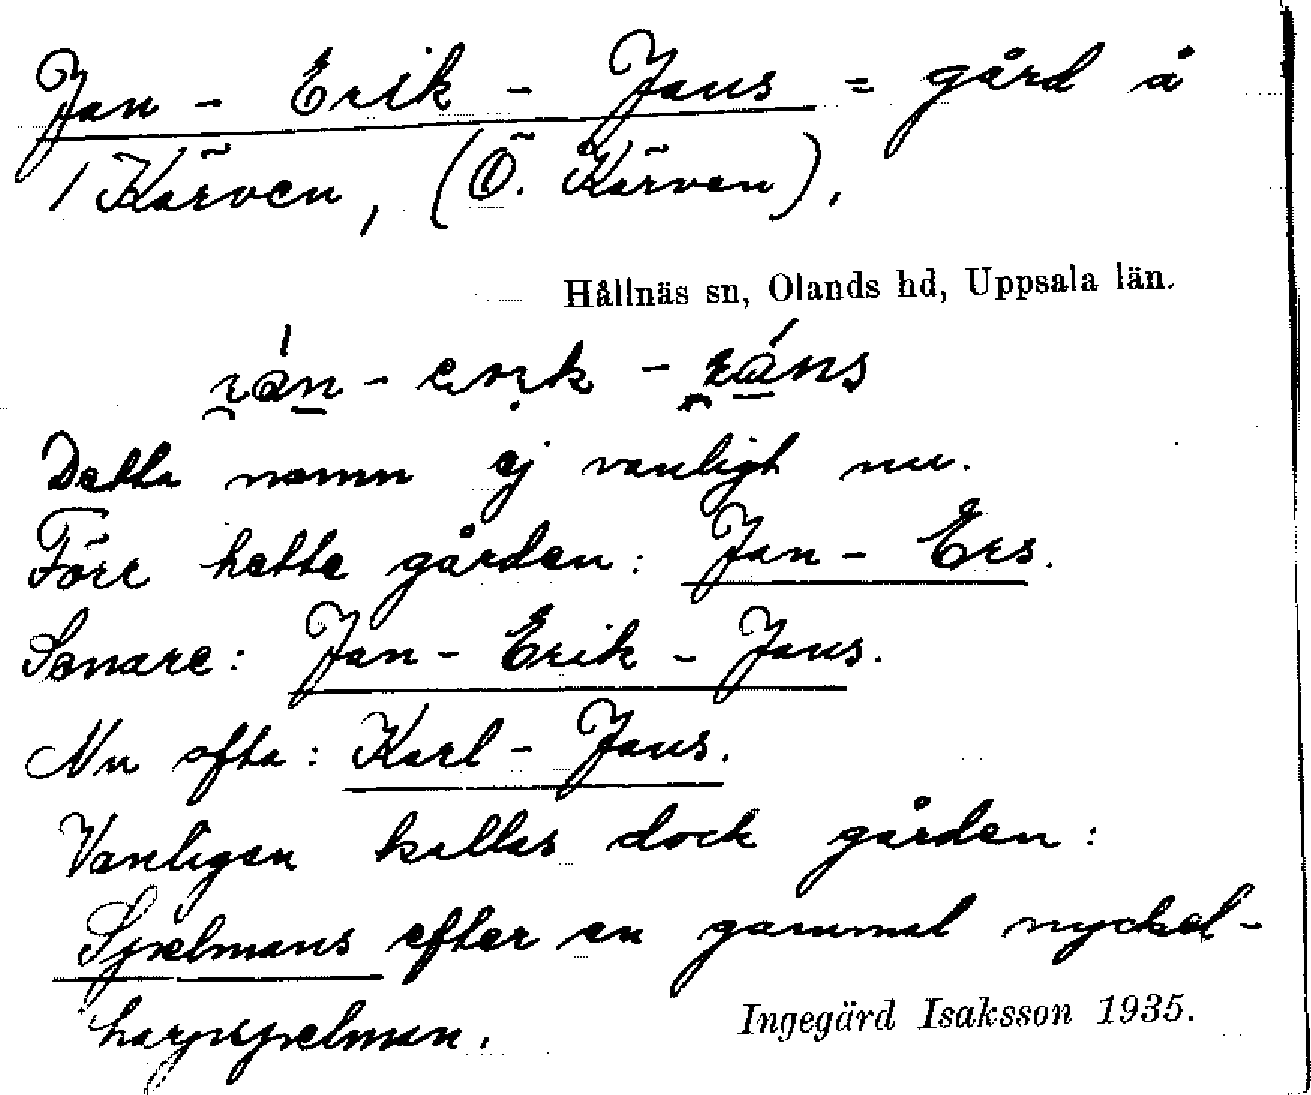 Jan - Erik - Jans = gård å
/ Kärven, (Ö. Kärven).
Hållnäs sn, Olands hd, Uppsala län.
Detta namn ej vanligt nu.
Före hette gården: Jan - Ers.
Senare: Jan - Erik - Jans.
Nu ofta: Karl - Jans.
Vanligen kallas dock gården:
Spelmans efter en gammal nyckel-
harpspelman.
Ingegärd Isaksson 1935.